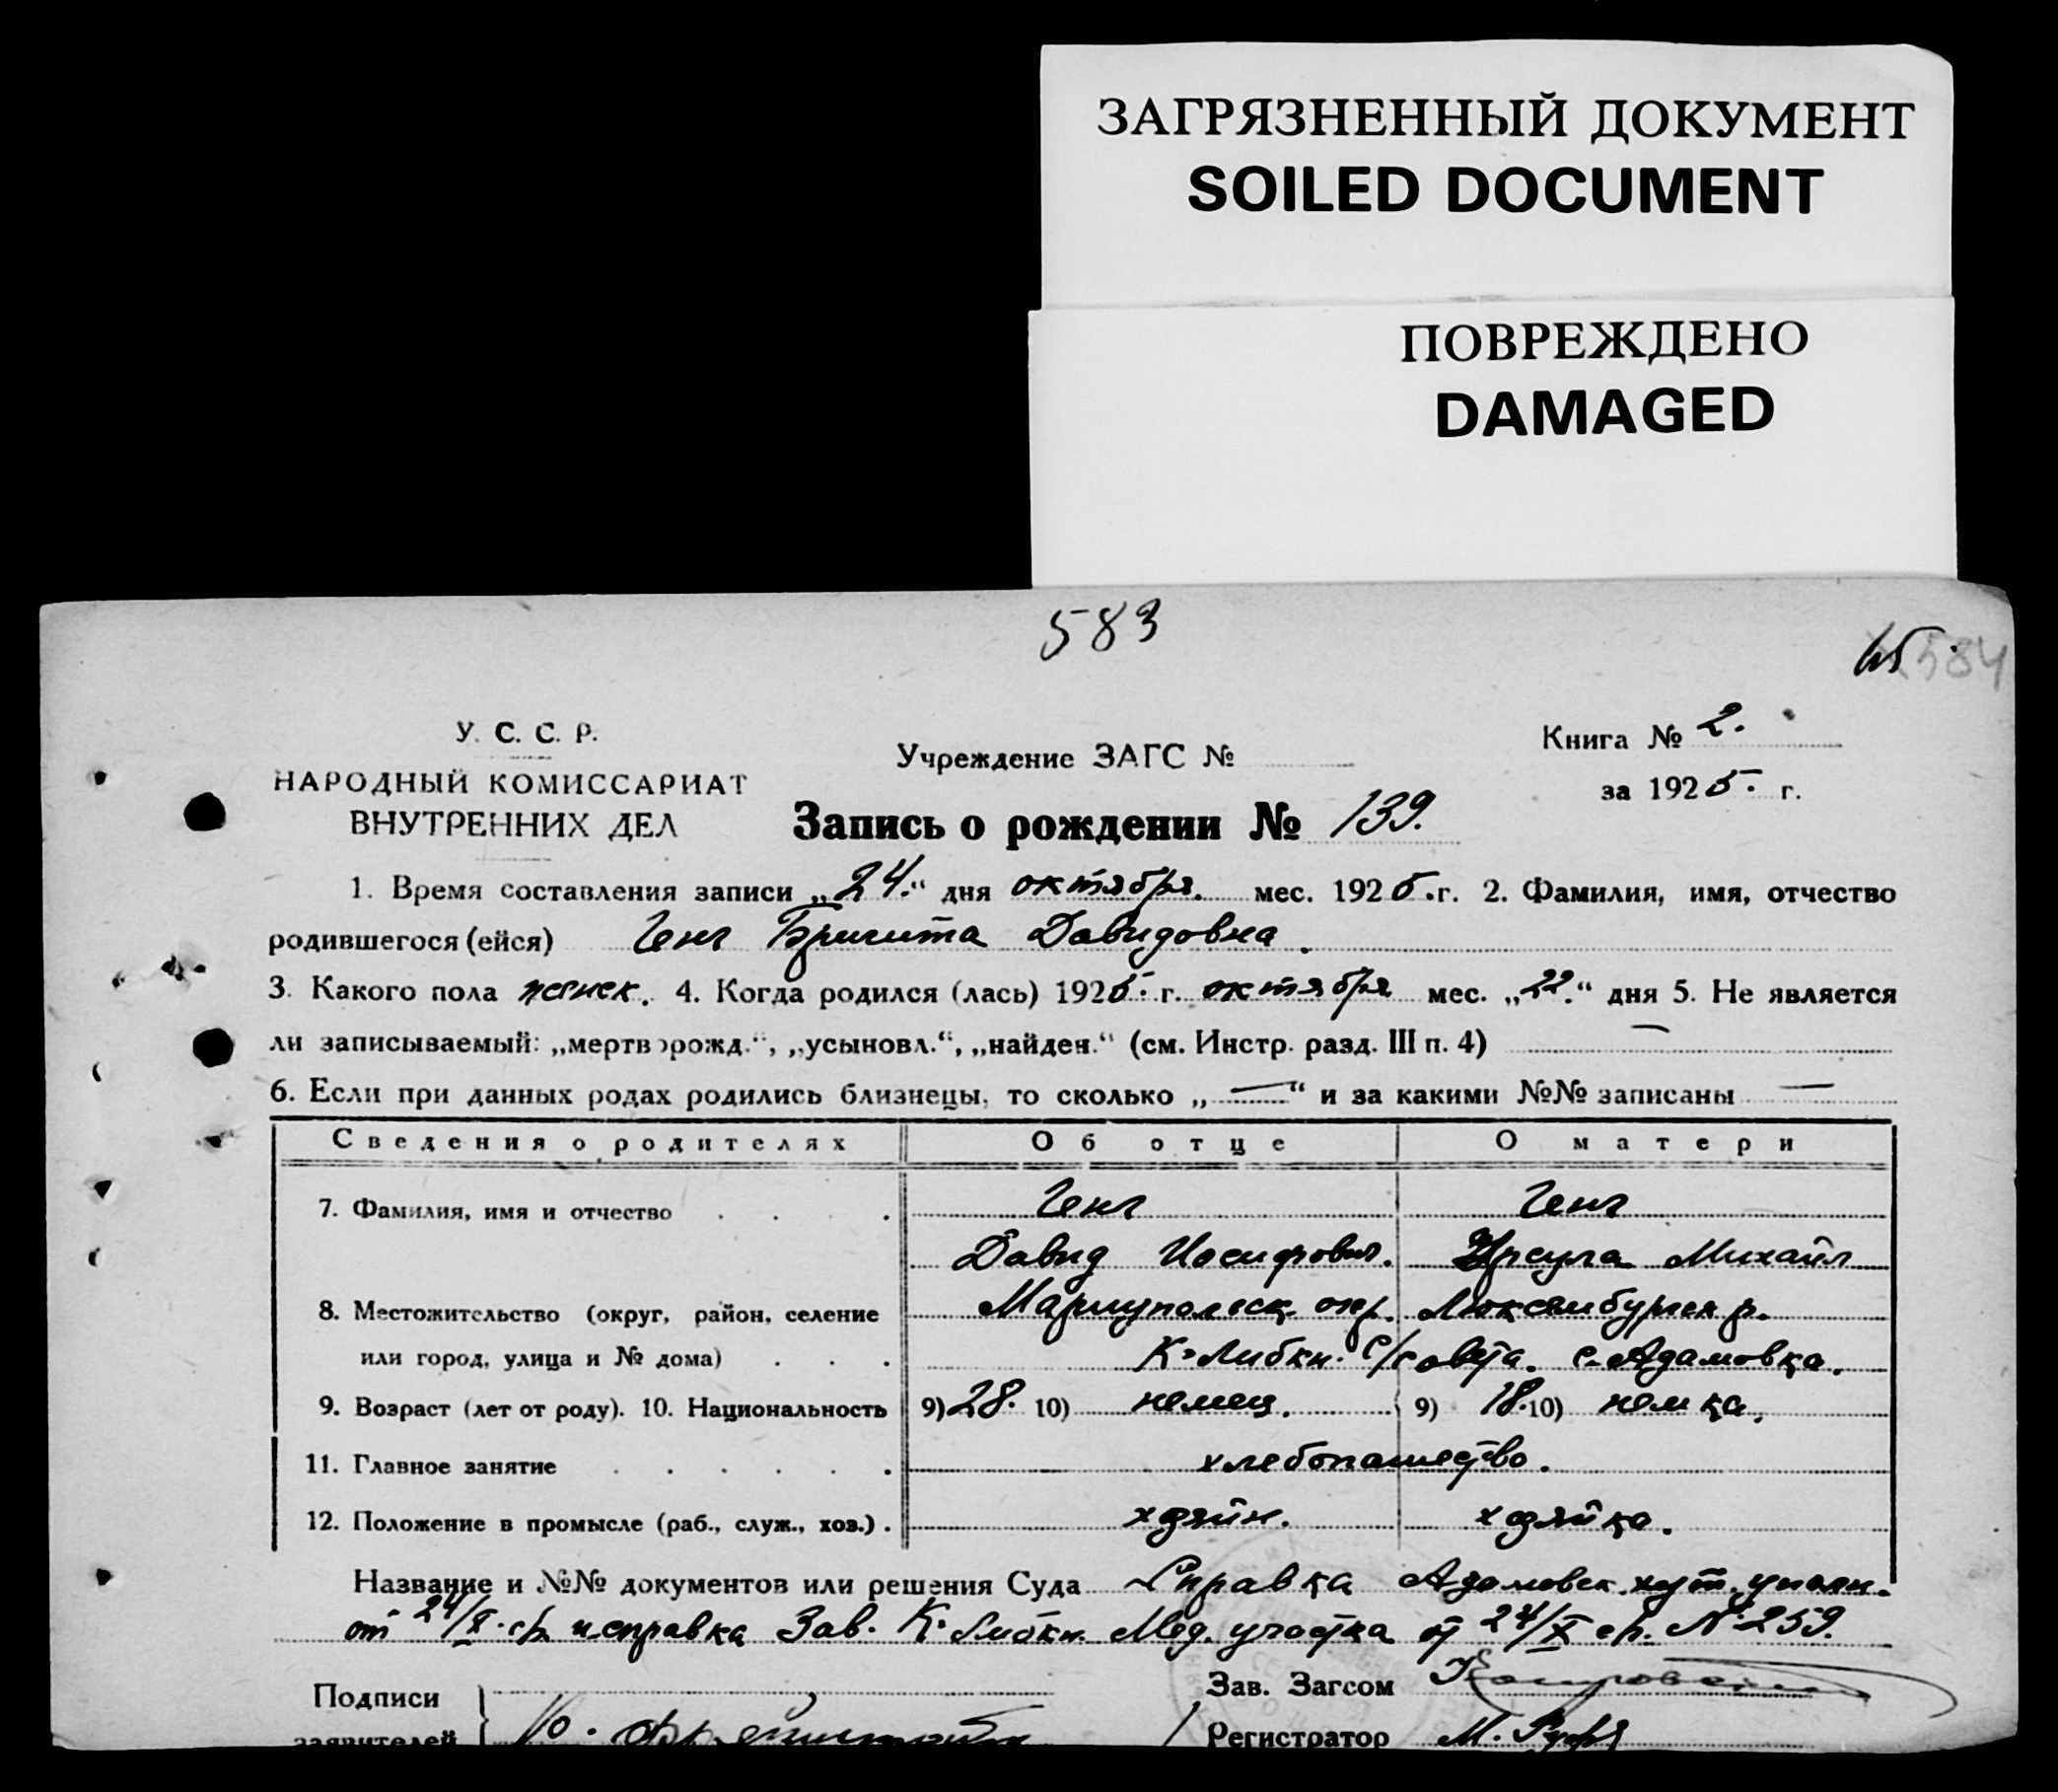 ЗАГРЯЗНЕННЫЙ ДОКУМЕНТ
SOILED DOCUMENT
ПОВРЕЖДЕНО
DAMAGED
583
584
У. С. С. Р.
НАРОДНЫЙ КОМИССАРИАТ
ВНУТРЕННИХ ДЕЛ
Учреждение ЗАГС №
Книга № 2.
за 1925. г.
Запись о рождении № 139.
1. Время составления записи „24.“ дня октября. мес. 1925.г. 2. Фамилия, имя, отчество
родившегося (ейся) Генг Бригита Давидовна.
3. Какого пола женск. 4. Когда родился (лась) 1925. г. октября мес. „22.“ дня 5. Не является
ли записываемый: „мертворожд.“, „усыновл.“, „найден.“ (см. Инстр. разд. III п. 4) —
6. Если при данных родах родились близнецы, то сколько „—“ и за какими №№ записаны —
Сведения о родителях Об отце О матери
7. Фамилия, имя и отчество Генг Генг
Давид Иосифович. Урсула Михайл
8. Местожительство (округ, район, селение Мариупольск. окр. Люксембургск. р.
или город, улица и № дома) К-Либкн. с/совета. с. Адамовка.
9. Возраст (лет от роду). 10. Национальность 9) 28. 10) немец. 9) 18. 10) немка.
11. Главное занятие хлебопашество.
12. Положение в промысле (раб., служ., хоз.). хозяин. хозяйка.
Название и №№ документов или решения Суда Справка Адамовск. хут. уполн.
от 24/X. с/г. и справка Зав. К. Либкн. Мед. участка от 24/X с/г. № 259.
Подписи
заявителей
Зав. Загсом
Регистратор М.